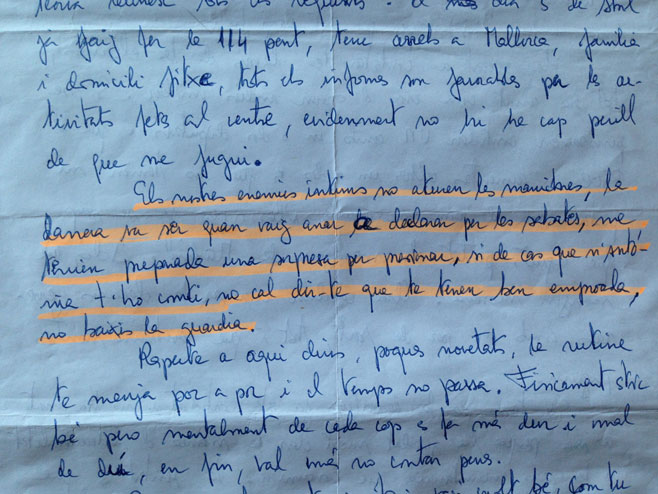 tots els requisits. el dia 5 de
ja vaig fer la 1/4 part, tenc arrels a Mallorca, família
i domicili fitxe, tots els informes son favorables per les ac-
tivitats fetes al centre, evidentment no hi ha cap perill
de que me fugui.
Els nostres enemics íntims no aturen les maniobres, la
darrera va ser quan vaig anar a declarar per les sabates, me
tenien preparada una sorpresa per pressionar, si de cas que n'Anto-
nia t'ho conti, no cal dir-te que te tenen ben emprovada,
no baixis la guardia.
Respecte a aqui dins, poques novetats, la rutina
te menja poc a poc i el temps no passa. Fisicament estic
bé pero mentalment de cada cop es fa més dur i mal
de dur, en fin, val més no contar penes.
molt bé, com tu